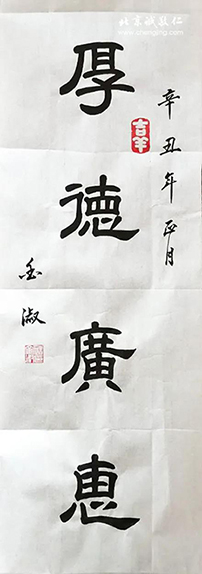 北京诚敬仁
www.chengjing.com
辛丑年正月
吉羊
厚德廣惠
金淑